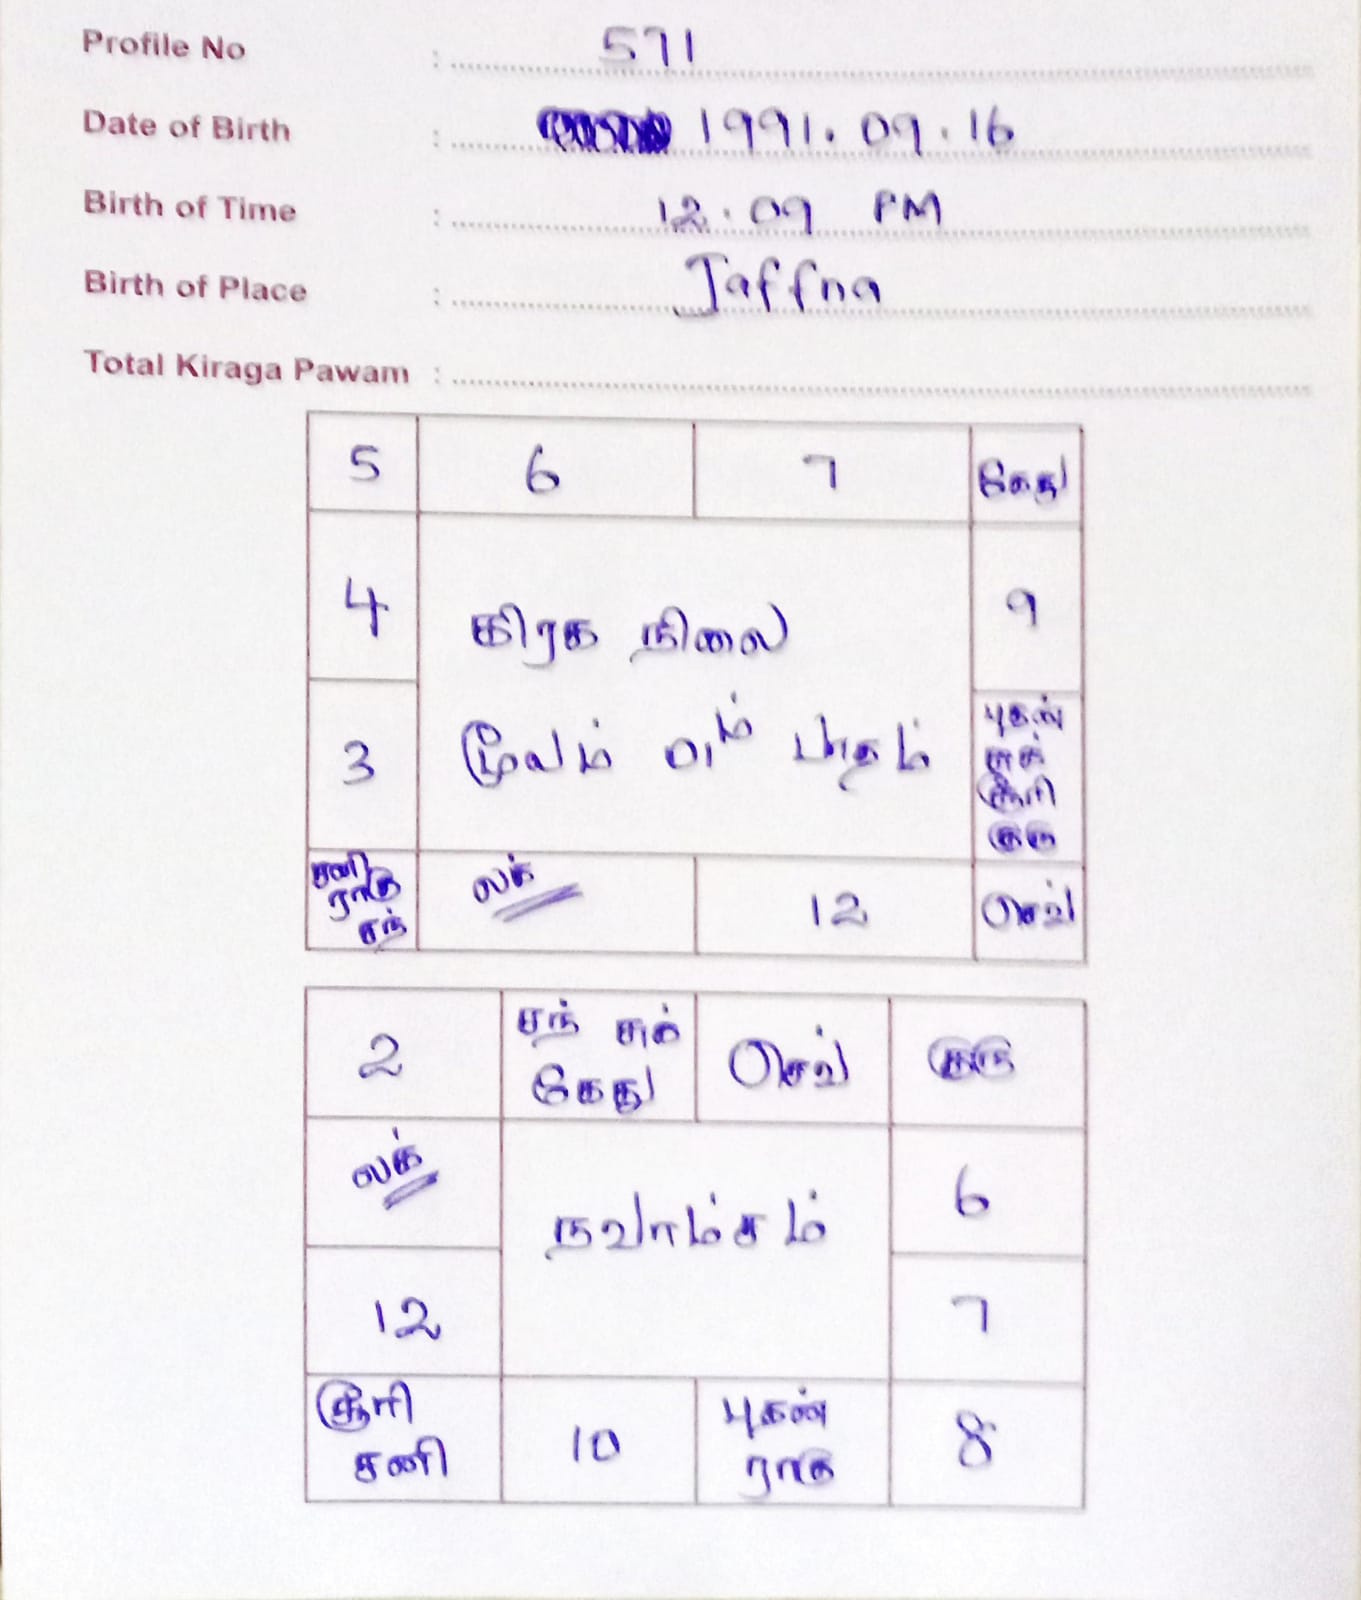 Profile No : 571
Date of Birth : 1991.09.16
Birth of Time : 12.09 PM
Birth of Place : Jaffna
Total Kiraga Pawam :
5 6 7 கேது
4 9
கிரக நிலை
மூலம் 01ம் பாதம்
3 புதன்
சுக்
சூரி
குரு
சனி
ராகு
சந்
லக் 12 செவ்
2 சந் சுக்
கேது
செவ் குரு
லக் 6
நவாம்சம்
12 7
சூரி
சனி
10 புதன்
ராகு
8